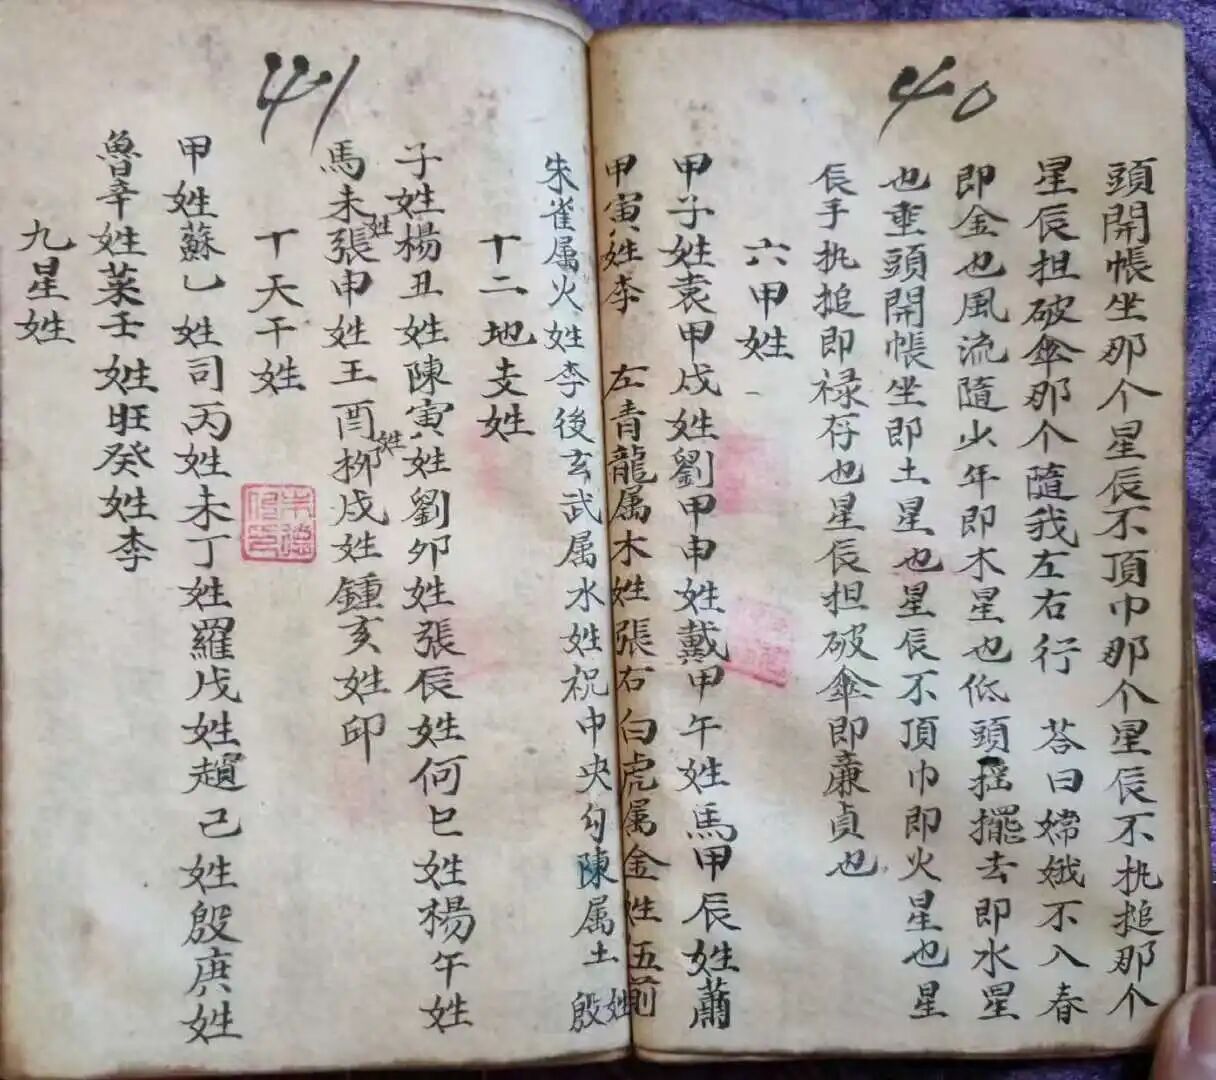 40
頭開帳坐那个星辰不頂巾那个星辰不执搥那个
星辰担破傘那个隨我左右行 荅曰嫦娥不入春
即金也風流隨少年即木星也低頭摇擺去即水星
也垂頭開帳坐即土星也星辰不頂巾即火星也星
辰手执搥即禄存也星辰担破傘即廉貞也
六甲姓
甲子姓袁甲戌姓劉甲申姓戴甲午姓馬甲辰姓蕭
甲寅姓李 左青龍属木姓張右白虎属金姓伍前
朱雀属火姓李後玄武属水姓祝中央勾陳属土姓殷
41
十二地支姓
子姓楊丑姓陳寅姓劉卯姓張辰姓何巳姓楊午姓
馬未姓張申姓王酉姓柳戌姓鍾亥姓印
十天干姓
甲姓蘇乙姓司丙姓未丁姓羅戊姓趙己姓殷庚姓
魯辛姓菜壬姓旺癸姓李
九星姓